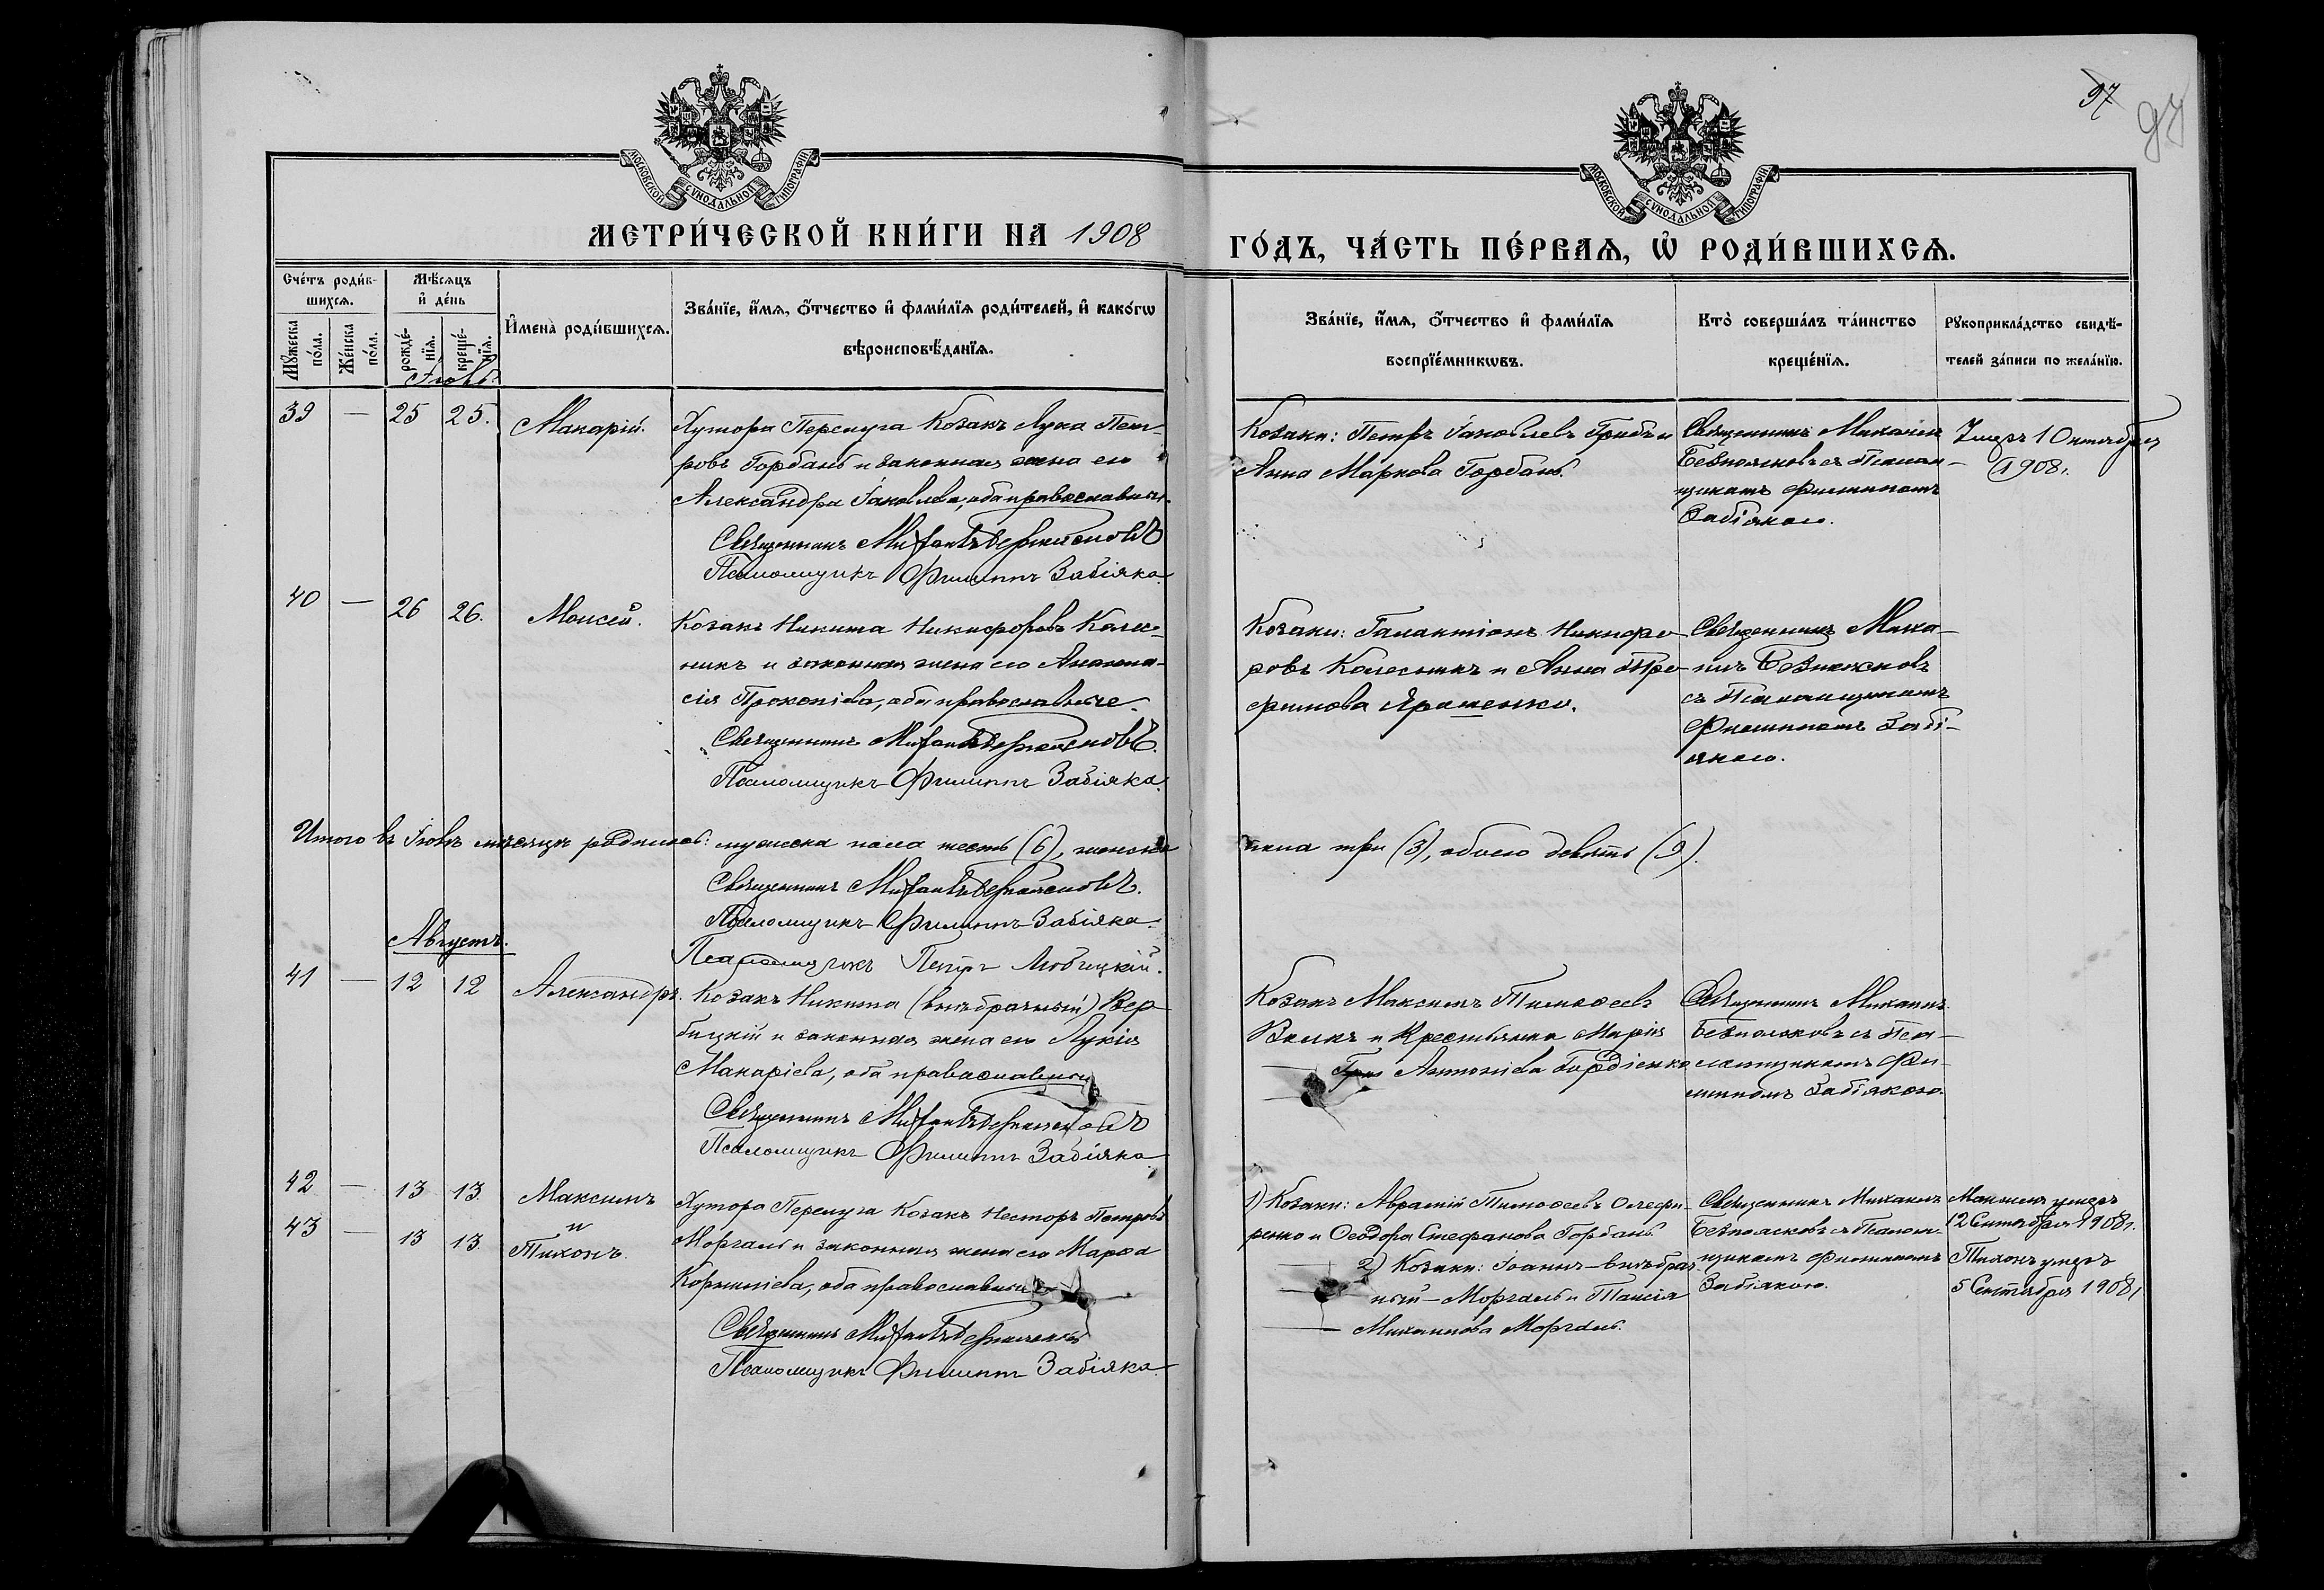 97
97
МОСКОВСКОЙ СѴНОДАЛЬНОЙ ТИПОГРАФІИ
МОСКОВСКОЙ СѴНОДАЛЬНОЙ ТИПОГРАФІИ
МЕТРИ́ЧЕСКОЙ КНИ́ГИ НА 1908
ГО́ДЪ, ЧА́СТЬ ПЕ́РВАѦ, Ѡ҆ РОДИ́ВШИХСѦ.
Сче́тъ роди́в-
шихсѧ.
Мꙋ́жеска по́ла.
Же́нска по́ла.
Мѣ́сѧцъ
и҆ де́нь
рожде́-
нїѧ.
креще́-
нїѧ.
И҆мена̀ роди́вшихсѧ.
Зва́нїе, и҆́мѧ, ѻ҆́тчество и҆ фами́лїѧ роди́телей, и҆ како́гѡ
вѣроисповѣ́данїѧ.
Зва́нїе, и҆́мѧ, ѻ҆́тчество и҆ фами́лїѧ
воспрїе́мникѡвъ.
Кто̀ соверша́лъ та́инство
креще́нїѧ.
Рꙋкоприкла́дство свидѣ́-
телей за́писи по жела́нїю.
Іюль.
39 — 25 25. Макарій.
Хутора Перемуга Козакъ Лука Пет-
ровъ Горбань и законная жена его
Александра Іаковлева, оба православные.
Священникъ Михаилъ Безпоясковъ
Псаломщикъ Филиппъ Забіяка.
Козаки: Петръ Іаковлевъ и
Анна Маркова Горбань.
Священникъ Михаилъ
Безпоясковъ съ Псалом-
щикомъ Филиппомъ
Забіякою.
Умеръ 1 Октября
1908 г.
40 — 26 26. Моисей.
Козакъ Никита Никифоровъ Колес-
никъ и законная жена его Анаста-
сія Прокопіева, оба православные.
Священникъ Михаилъ Безпоясковъ.
Псаломщикъ Филиппъ Забіяка.
Козаки: Галактіонъ Никифо-
ровъ Колесникъ и Анна Тро-
фимова Ярошенко.
Священникъ Миха-
илъ Безпоясковъ
съ Псаломщикомъ
Филиппомъ Забі-
якою.
Итого въ Іюлѣ мѣсяцѣ родилось: мужеска пола шесть (6), женска
пола три (3), обоего девять (9).
Священникъ Михаилъ Безпоясковъ.
Псаломщикъ Филиппъ Забіяка.
Псаломщикъ Петръ Любицкій.
Августъ.
41 — 12 12 Александръ.
Козакъ Никита (внѣбрачный) Вер-
бицкій и законная жена его Лукія
Макаріева, оба православные
Священникъ Михаилъ Безпоясковъ
Псаломщикъ Филиппъ Забіяка
Козакъ Максимъ Тимоѳеевъ
Волкъ и Крестьянка Марія
Антоніева Гордіенко
Священникъ Михаилъ
Безпоясковъ съ Пса-
ломщикомъ Фи-
липпомъ Забіякою.
42 — 13 13. Максимъ
и
43 — 13 13. Тихонъ.
Хутора Перемуга Козакъ Несторъ Петровъ
Моргаль и законная жена его Марѳа
Корниліева, оба православные
Священникъ Михаилъ Безпоясковъ
Псаломщикъ Филиппъ Забіяка.
1) Козаки: Аврамій Тимоѳеевъ Олефи-
ренко и Ѳеодора Стефанова Горбань.
2) Козаки: Іоаннъ — внѣбрач-
ный — Моргаль и Таисія
Михаилова Моргаль.
Священникъ Михаилъ
Безпоясковъ съ Псалом-
щикомъ Филиппомъ
Забіякою.
Максимъ умеръ
12 Сентября 1908 г.
Тихонъ умеръ
5 Сентября 1908 г.